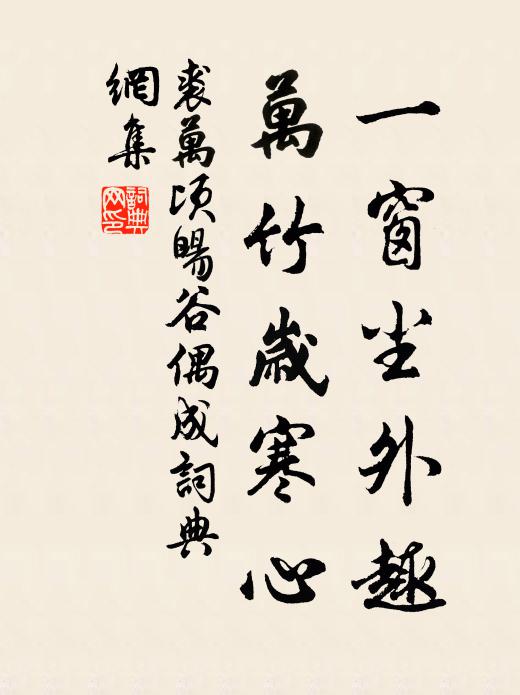 一窗尘外趣
萬竹歲寒心
裘萬頃暘谷偶成詞典
網集
詞典
网印